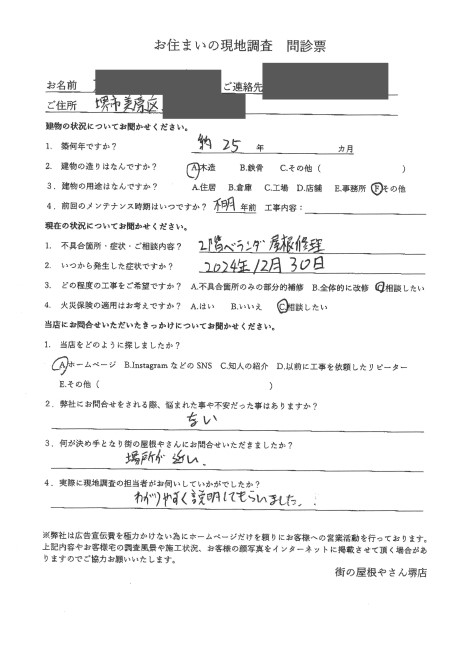 お住まいの現地調査　問診票
お名前　ご連絡先
ご住所　堺市美原区
建物の状況についてお聞かせください。
1. 築何年ですか？　約 25 年　カ月
2. 建物の造りはなんですか？　A.木造　B.鉄骨　C.その他（　）
3. 建物の用途はなんですか？　A.住居　B.倉庫　C.工場　D.店舗　E.事務所　F.その他
4. 前回のメンテナンス時期はいつですか？　年前　工事内容：
現在の状況についてお聞かせください。
1. 不具合箇所・症状・ご相談内容？　2階ベランダ屋根修理
2. いつから発生した症状ですか？　2024年12月30日
3. どの程度の工事をご希望ですか？　A.不具合箇所のみの部分的補修　B.全体的に改修　C.相談したい
4. 火災保険の適用はお考えですか？　A.はい　B.いいえ　C.相談したい
当店にお問合せいただいたきっかけについてお聞かせください？
1. 当店をどのように探しましたか？
A.ホームページ　B.Instagram などの SNS　C.知人の紹介　D.以前に工事を依頼したリピーター
E.その他（　）
2. 弊社にお問合せをされる際、悩まれた事や不安だった事はありますか？
ない
3. 何が決め手となり街の屋根やさんにお問合せいただきましたか？
場所が近い。
4. 実際に現地調査の担当者がお伺いしていかがでしたか？
わかりやすく説明してもらいました。
※弊社は広告宣伝費を極力かけない為にホームページだけを頼りにお客様への営業活動を行っております。
上記内容やお客様宅の調査風景や施工状況、お客様の顔写真をインターネットに掲載させて頂く場合があ
りますのでご協力お願いいたします。
街の屋根やさん堺店